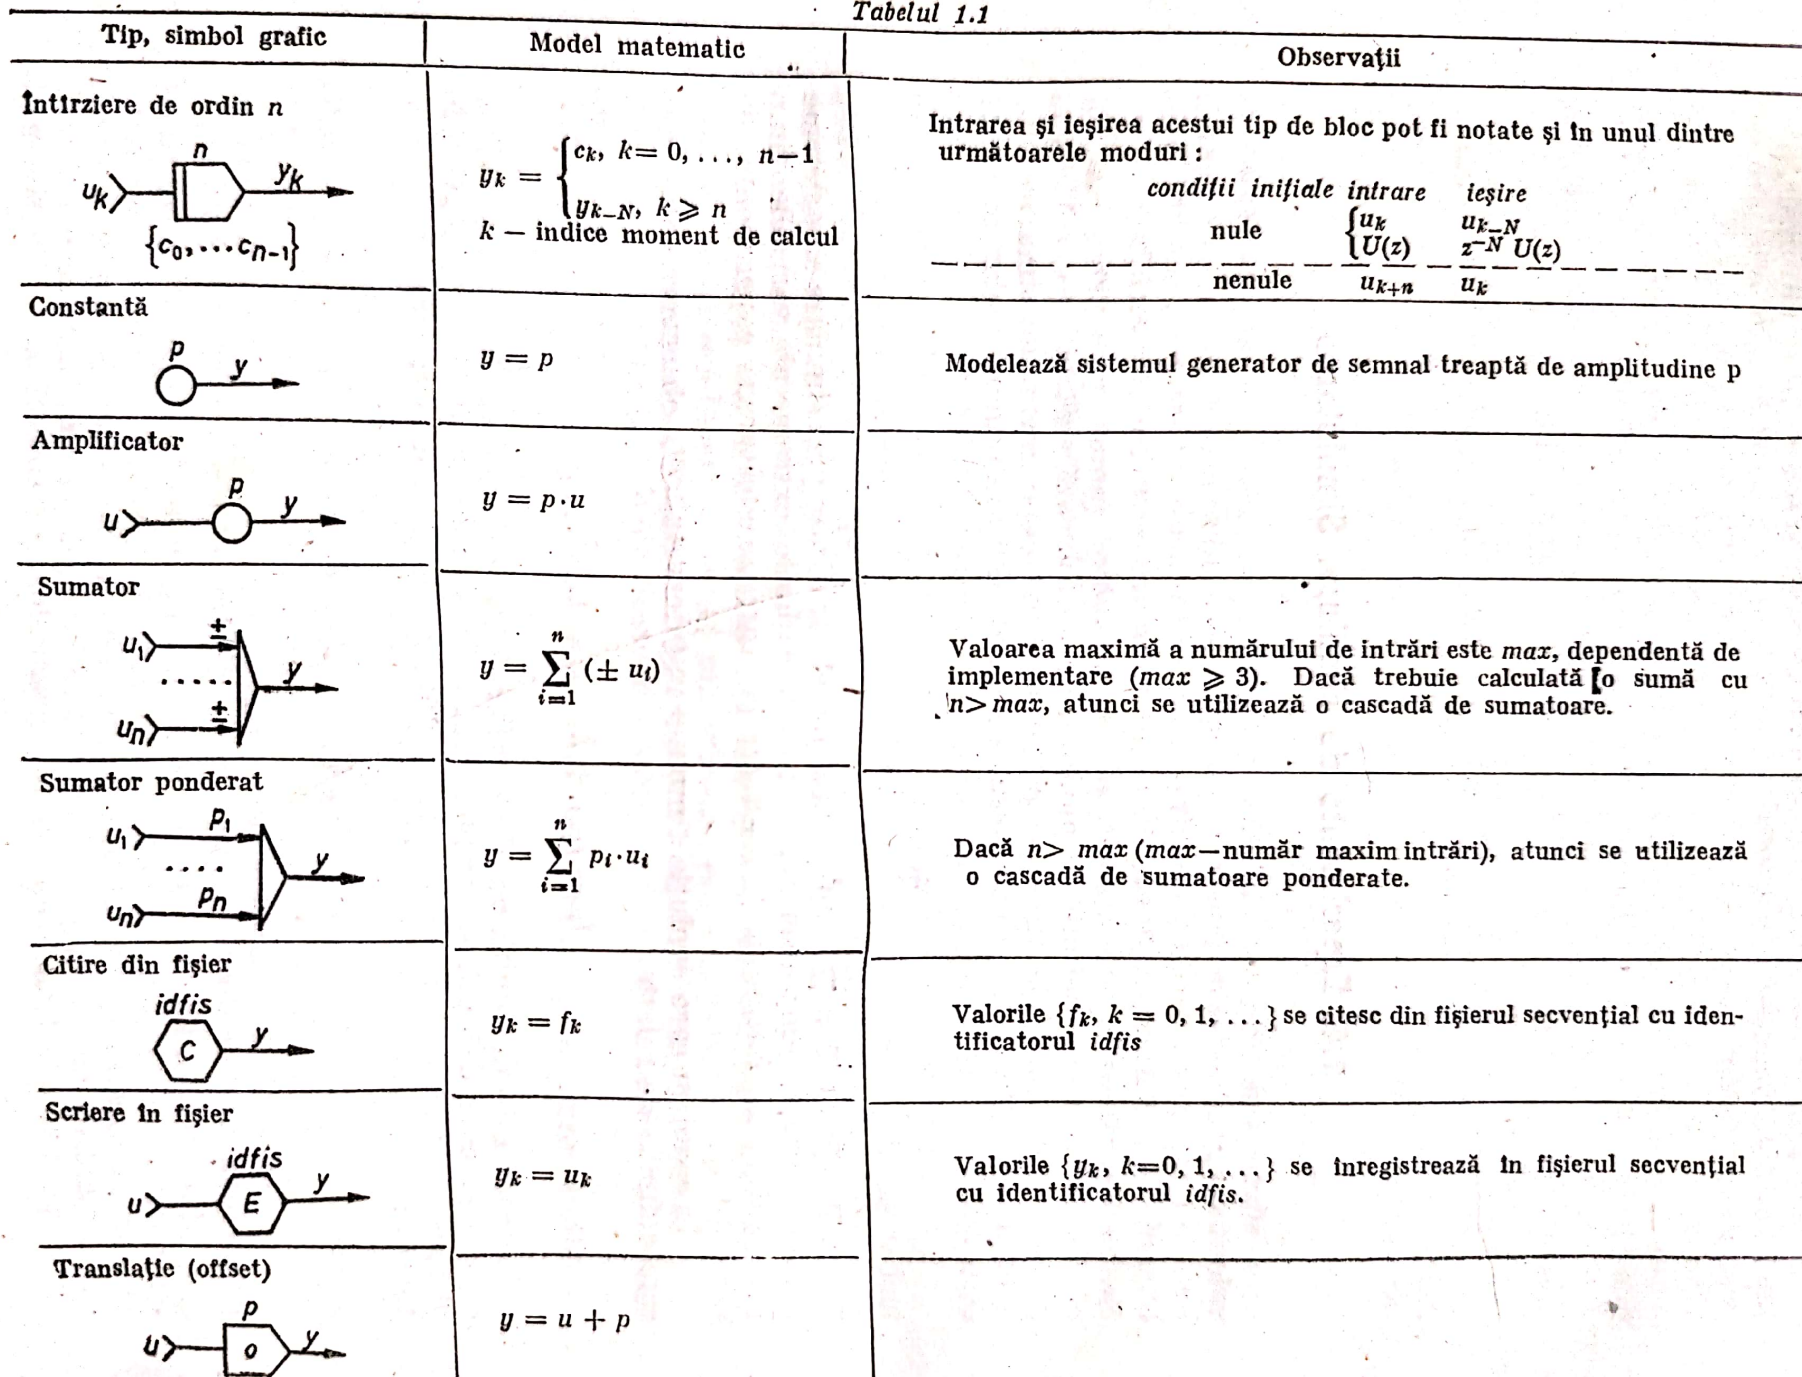 Tabelul 1.1
Tip, simbol grafic | Model matematic | Observaţii
Întîrziere de ordin n
n
u_k y_k
{c_0, ... c_{n-1}}
y_k = { c_k, k = 0, ..., n−1
y_{k−N}, k ⩾ n
k — indice moment de calcul
Intrarea şi ieşirea acestui tip de bloc pot fi notate şi în unul dintre
următoarele moduri :
condiţii iniţiale intrare ieşire
nule { u_k u_{k−N}
U(z) z^{−N} U(z)
nenule u_{k+n} u_k
Constantă
p
y
y = p
Modelează sistemul generator de semnal treaptă de amplitudine p
Amplificator
p
u y
y = p·u
Sumator
u_1 ±
..... y
u_n ±
y = ∑_{i=1}^{n} (± u_i)
Valoarea maximă a numărului de intrări este max, dependentă de
implementare (max ⩾ 3). Dacă trebuie calculată o sumă cu
n> max, atunci se utilizează o cascadă de sumatoare.
Sumator ponderat
u_1 p_1
.... y
u_n p_n
y = ∑_{i=1}^{n} p_i·u_i
Dacă n> max (max—număr maxim intrări), atunci se utilizează
o cascadă de sumatoare ponderate.
Citire din fişier
idfis
C y
y_k = f_k
Valorile {f_k, k = 0, 1, ...} se citesc din fişierul secvenţial cu iden-
tificatorul idfis
Scriere în fişier
idfis
u E y
y_k = u_k
Valorile {y_k, k=0, 1, ...} se înregistrează în fişierul secvenţial
cu identificatorul idfis.
Translaţie (offset)
p
u o y
y = u + p